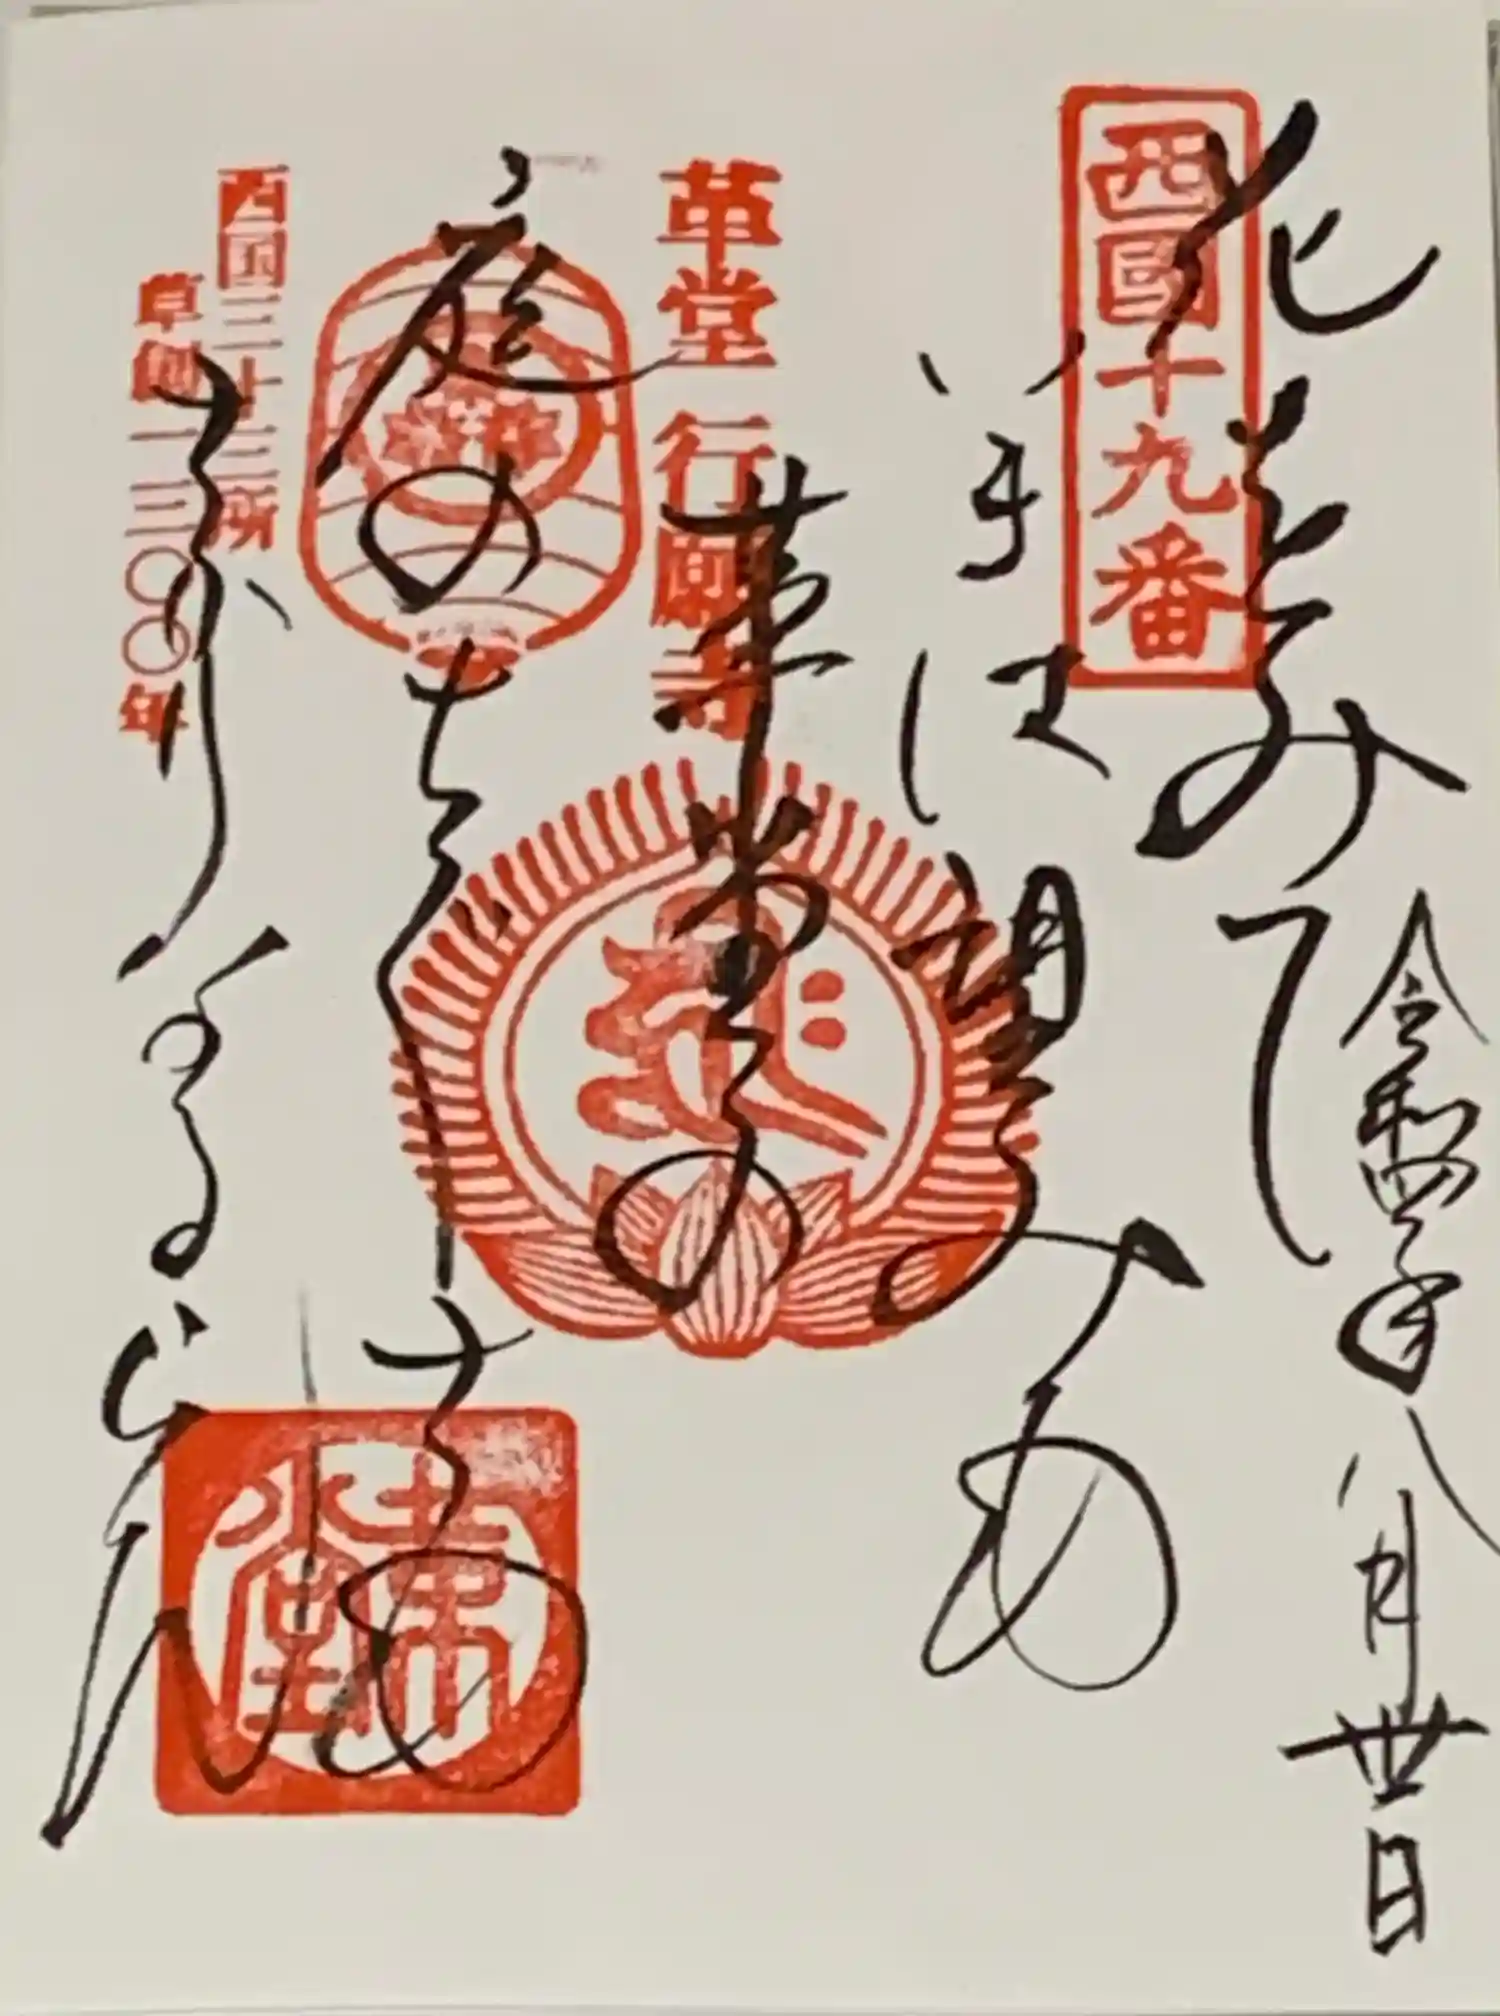 令和四年八月丗日
西國十九番
花をみて
いまは望みも
革堂の
庭のちぐさも
さかりなるらん
革堂 行願寺
西国三十三所
草創一三〇〇年
革堂